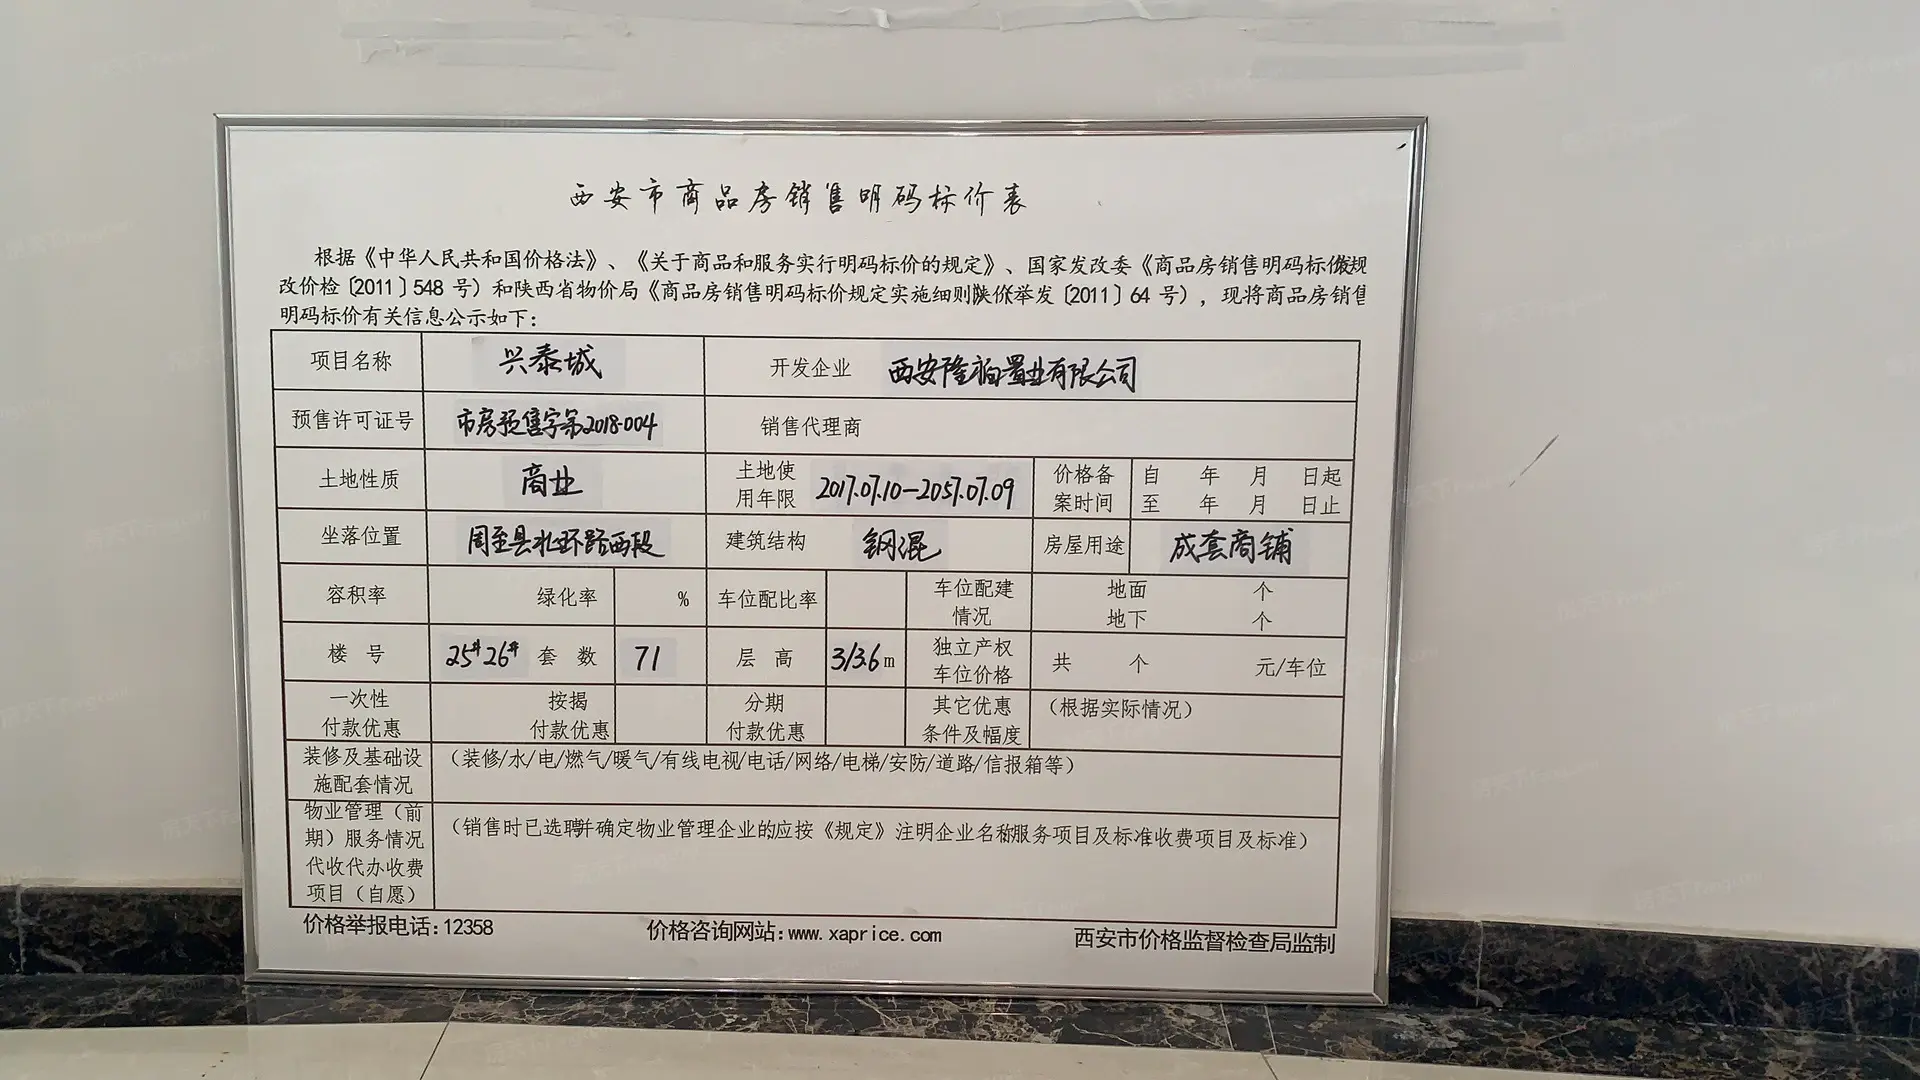 西安市商品房销售明码标价表
根据《中华人民共和国价格法》、《关于商品和服务实行明码标价的规定》、国家发改委《商品房销售明码标价规
改价检〔2011〕548 号）和陕西省物价局《商品房销售明码标价规定实施细则陕价举发〔2011〕64 号），现将商品房销售
明码标价有关信息公示如下：
项目名称 兴泰城 开发企业 西安隆裕置业有限公司
预售许可证号 市房预售字第2018-004 销售代理商
土地性质 商业 土地使用年限 2017.07.10-2057.07.09 价格备案时间 自 年 月 日起
至 年 月 日止
坐落位置 周至县北环路西段 建筑结构 钢混 房屋用途 成套商铺
容积率 绿化率 % 车位配比率 车位配建情况 地面 个
地下 个
楼号 25# 26# 套数 71 层高 3/3.6 m 独立产权车位价格 共 个 元/车位
一次性付款优惠 按揭付款优惠 分期付款优惠 其它优惠条件及幅度 （根据实际情况）
装修及基础设施配套情况 （装修/水/电/燃气/暖气/有线电视/电话/网络/电梯/安防/道路/信报箱等）
物业管理（前期）服务情况代收代办收费项目（自愿） （销售时已选聘并确定物业管理企业的应按《规定》注明企业名称服务项目及标准收费项目及标准）
价格举报电话：12358 价格咨询网站：www.xaprice.com 西安市价格监督检查局监制